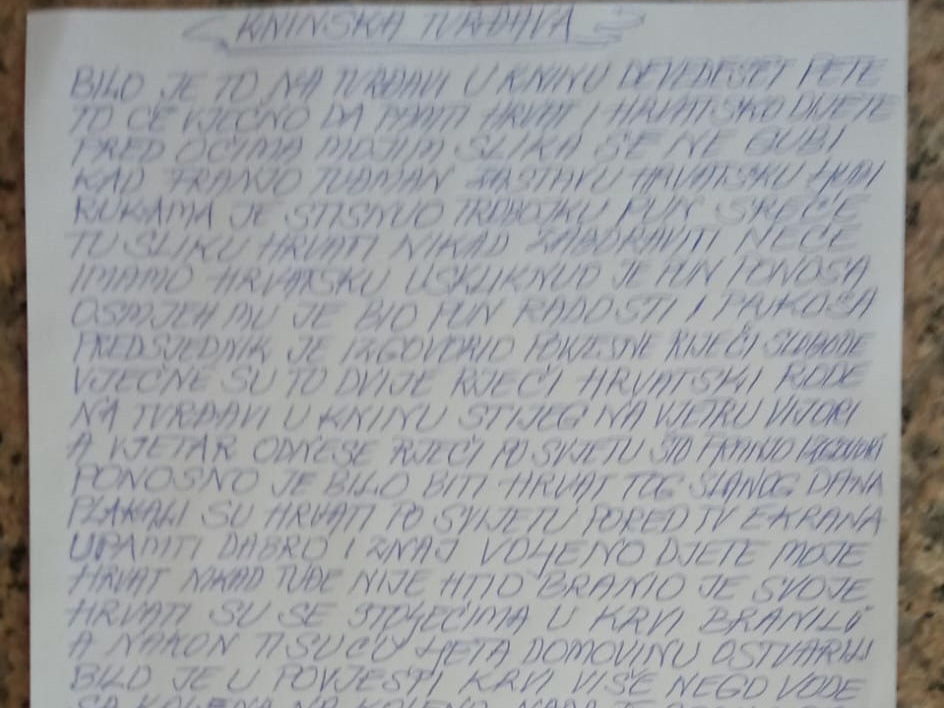 KNINSKA TVRĐAVA
BILO JE TO NA TVRĐAVI U KNINU DEVEDESET PETE
TO ĆE VJEČNO DA PAMTI HRVAT I HRVATSKO DIJETE
PRED OČIMA MOJIM SLIKA SE NE GUBI
KAD FRANJO TUĐMAN ZASTAVU HRVATSKU LJUBI
RUKAMA JE STISNUO TROBOJKU PUN SREĆE
TU SLIKU HRVATI NIKAD ZABORAVITI NEĆE
IMAMO HRVATSKU USKLIKNUO JE PUN PONOSA
OSMJEH MU JE BIO PUN RADOSTI I PRKOSA
PREDSJEDNIK JE IZGOVORIO POVJESNE RIJEČI SLOBODE
VJEČNE SU TO DVIJE RJEČI HRVATSKI RODE
NA TVRĐAVI U KNINU STIJEG NA VJETRU VIJORI
A VJETAR ODNESE RJEČI PO SVJETU ŠTO FRANJO IZGOVORI
PONOSNO JE BILO BITI HRVAT TOG SLANOG DANA
PLAKALI SU HRVATI PO SVIJETU PORED TV EKRANA
UPAMTI DABRO I ZNAJ VOLJENO DJETE MOJE
HRVAT NIKAD TUĐE NIJE HTIO BRANIO JE SVOJE
HRVATI SU SE STOLJEĆIMA U KRVI BRANILI
A NAKON TISUĆU LJETA DOMOVINU OSTVARILI
BILO JE U POVJESTI KRVI VIŠE NEGO VODE
SA KOLJENA NA KOLJENO